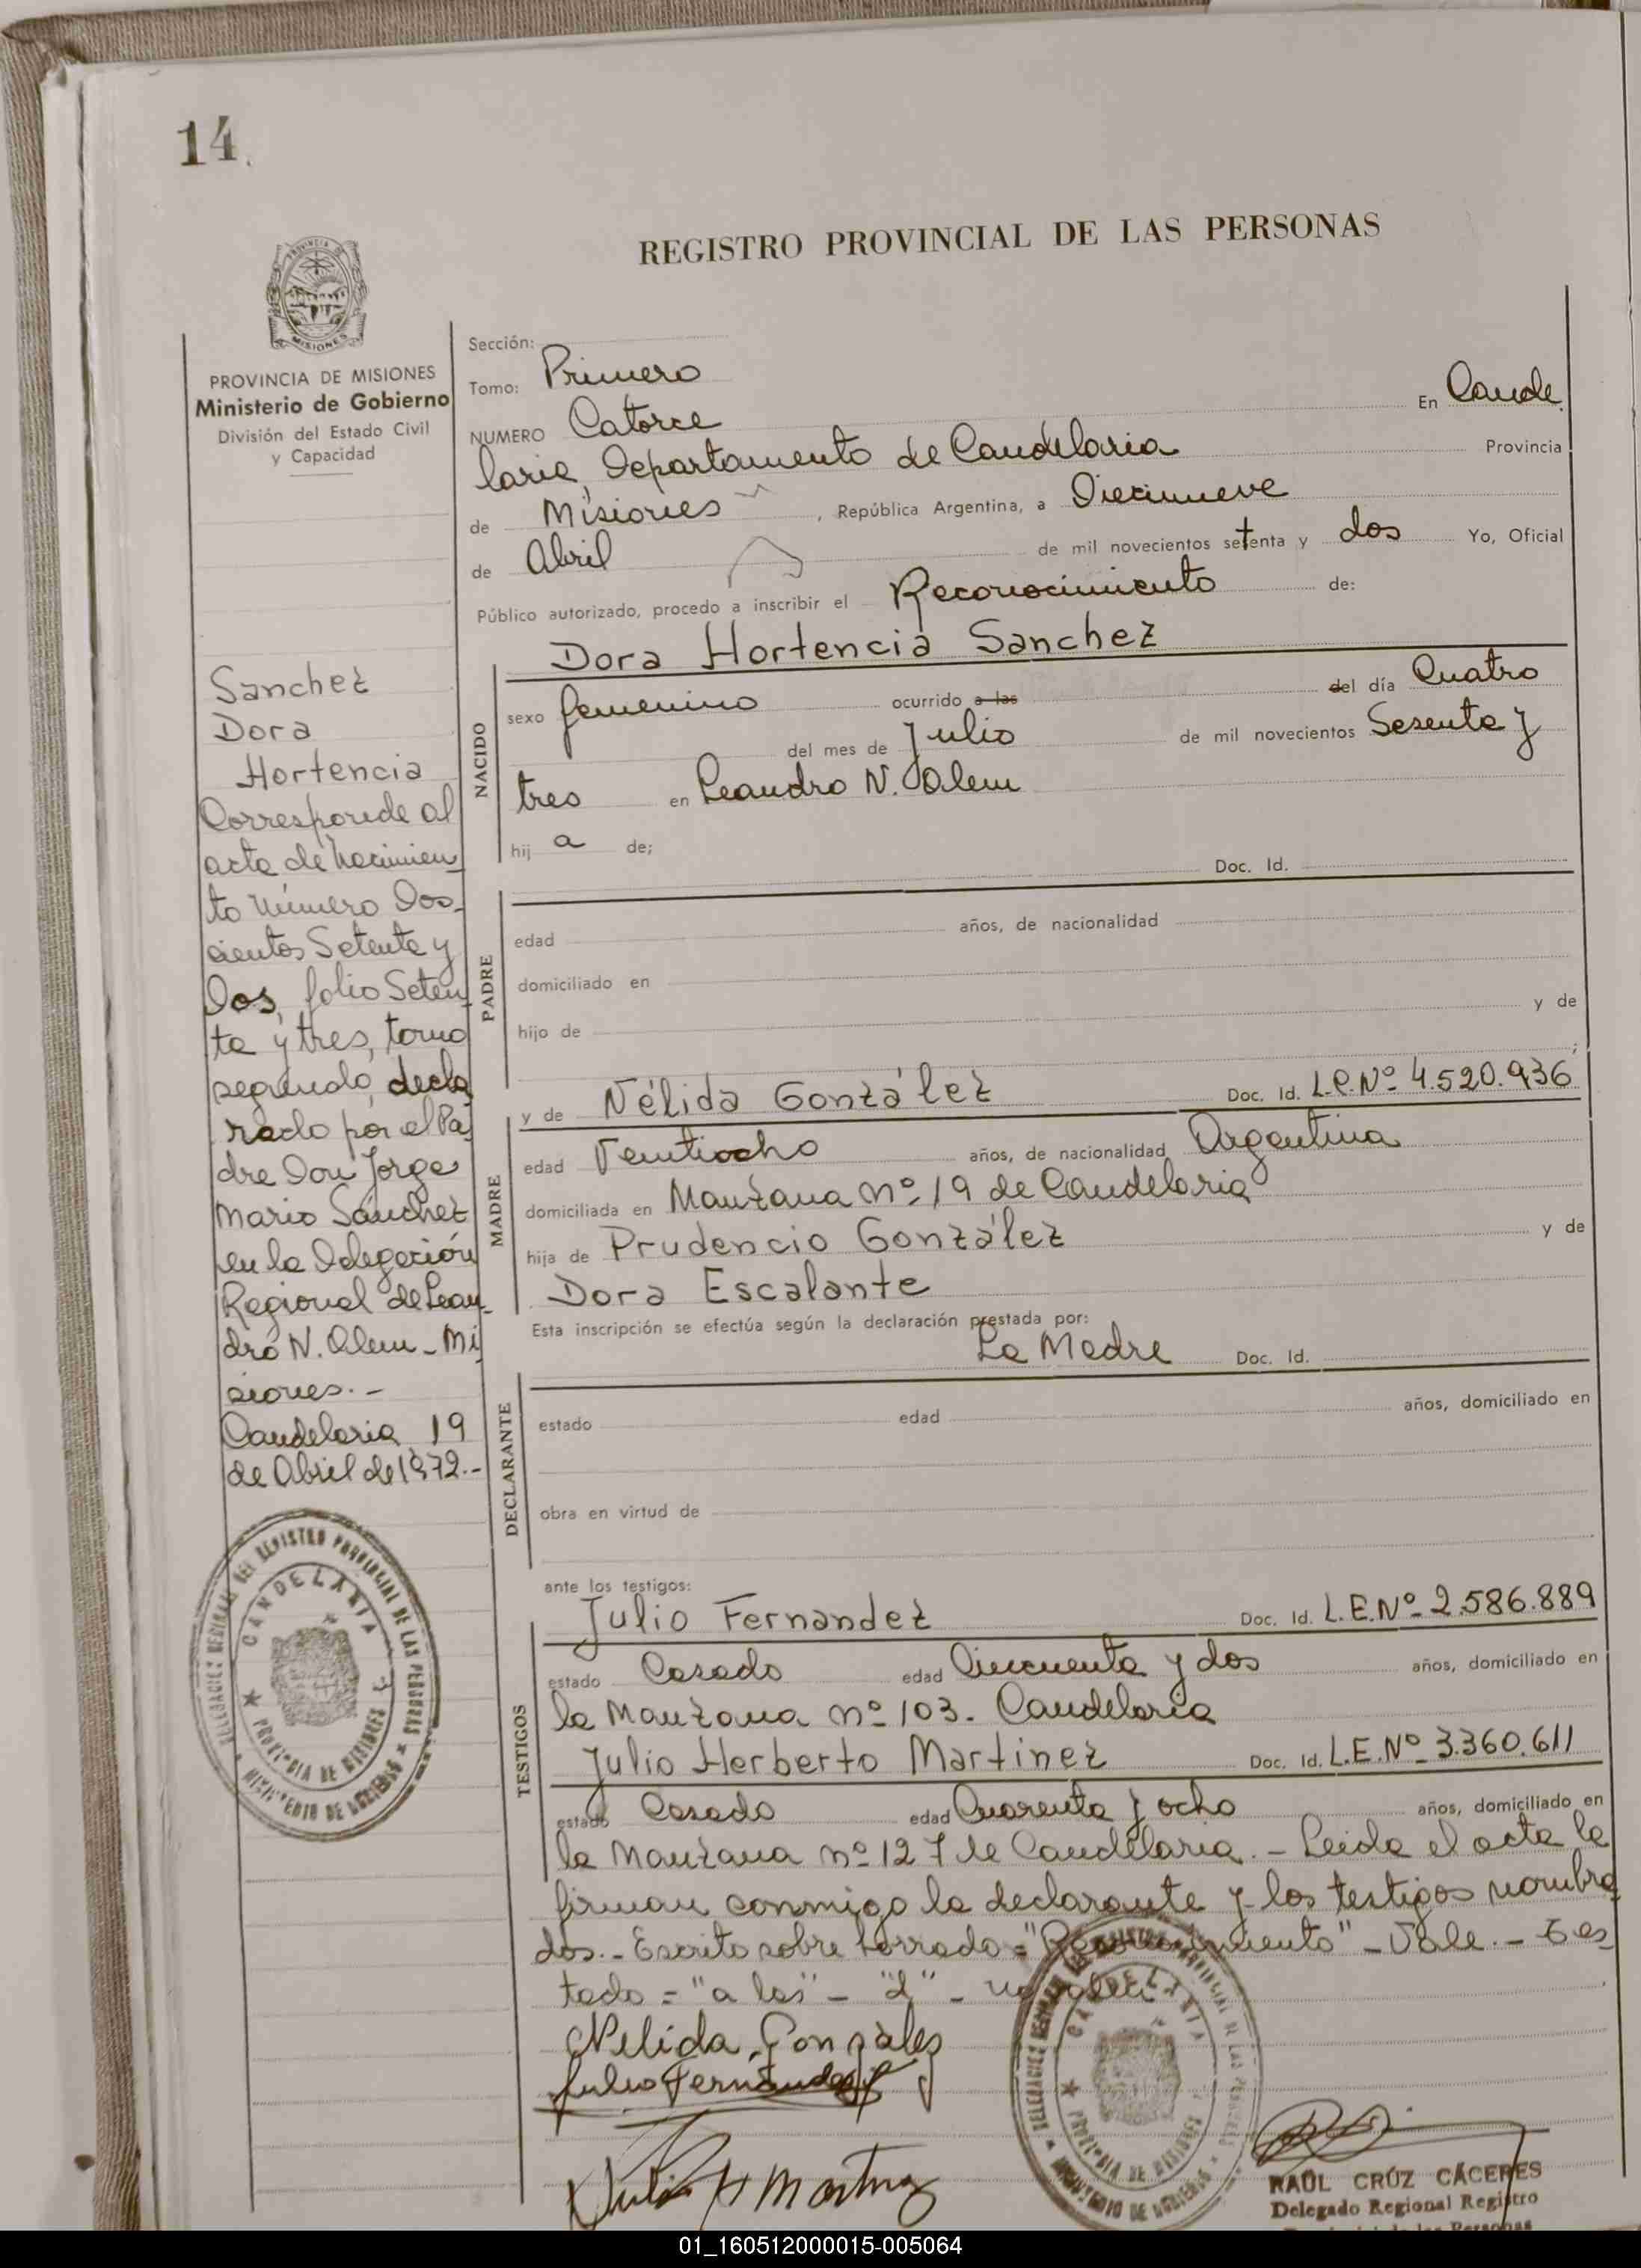 14.
REGISTRO PROVINCIAL DE LAS PERSONAS
MISIONES
PROVINCIA DE MISIONES
Ministerio de Gobierno
División del Estado Civil
y Capacidad
Sanchez
Dora
Hortencia
Corresponde al
acta de nacimien
to número Dos-
cientos Setenta y
Dos, folio Seten
ta y tres, tomo
segundo, decla
rado por el Pa
dre Don Jorge
Mario Sánchez
en la Delegación
Regional de Lean-
dro N. Alem - Mi
siones. -
Candelaria 19
de Abril de 1972.-
CANDELARIA
PROVINCIA DE MISIONES
Sección:
Tomo: Primero
NUMERO Catorce En Cande
laria, Departamento de Candelaria Provincia
de Misiones , República Argentina, a Diecinueve
de Abril de mil novecientos setenta y dos Yo, Oficial
Público autorizado, procedo a inscribir el Reconocimiento de:
Dora Hortencia Sanchez
NACIDO
sexo femenino ocurrido a las del día Cuatro
del mes de Julio de mil novecientos Sesenta y
tres en Leandro N. Alem
hij a de;
Doc. Id.
PADRE
edad años, de nacionalidad
domiciliado en
hijo de y de
;
MADRE
y de Nélida González Doc. Id. L.C.Nº 4.520.936
edad Veintiocho años, de nacionalidad Argentina
domiciliada en Manzana nº 19 de Candelaria
hija de Prudencio González y de
Dora Escalante
Esta inscripción se efectúa según la declaración prestada por:
La Madre Doc. Id.
DECLARANTE
estado edad años, domiciliado en
obra en virtud de
ante los testigos:
TESTIGOS
Julio Fernandez Doc. Id. L.E.Nº 2.586.889
estado Casado edad Cincuenta y dos años, domiciliado en
la Manzana nº 103. Candelaria
Julio Herberto Martinez Doc. Id. L.E.Nº 3.360.611
estado Casado edad Cuarenta y ocho años, domiciliado en
la Manzana nº 127 de Candelaria. - Leida el acta la
firman conmigo la declarante y los testigos nombra
dos.- Escrito sobre borrado = "Reconocimiento" - Vale. - Tes
tado = "a las" - "d" - no vale.
Nelida Gonzáles
Julio Fernandez
Julio H Martinez
CANDELARIA
PROVINCIA DE MISIONES
RAÚL CRÚZ CÁCERES
Delegado Regional Registro
Provincial de las Personas
01_160512000015-005064